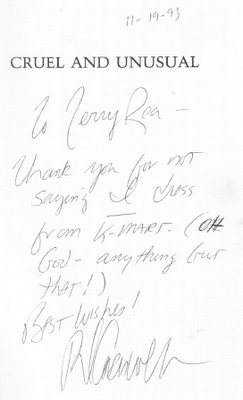 11-19-93
CRUEL AND UNUSUAL
To Terry Rea -
Thank you for not
saying I dress
from K-MART. (OH
God - anything but
that!)
Best Wishes!